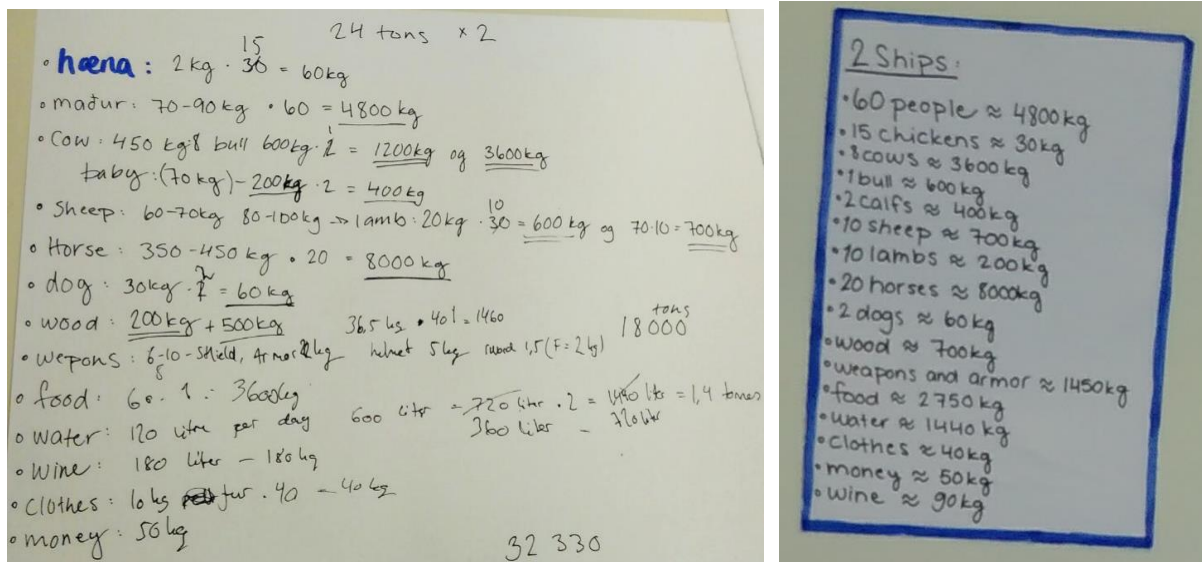 24 tons x 2
15
• hæna: 2kg · 30 = 60kg
• maður: 70-90kg · 60 = 4800kg
• Cow: 450 kg·8 bull 600kg· 1 = 1200kg og 3600kg
baby: (70kg) - 200kg · 2 = 400kg
• Sheep: 60-70kg 80-100kg → lamb: 20kg · 10 30 = 600kg og 70·10 = 700kg
• Horse: 350-450 kg · 20 = 8000kg
• dog: 30kg · 2 = 60kg
• wood: 200kg + 500kg 36,5 kg · 40 = 1460 18000 tons
• wepons: 6-10 - shield, Armor kg helmet 5kg 1,5 (F=2kg)
8
• food: 60 · 1 : 3600kg
• water: 120 litre per day 600 liter - 720 liter · 2 = 1440 liter = 1,4 tonnes
360 liter - 720 liter
• wine: 180 liter - 180kg
• Clothes: 10kg fur · 40 - 40kg
• money: 50kg
32 330
2 Ships:
• 60 people ≈ 4800kg
• 15 chickens ≈ 30kg
• 8 cows ≈ 3600kg
• 1 bull ≈ 600kg
• 2 calfs ≈ 400kg
• 10 sheep ≈ 700kg
• 10 lambs ≈ 200kg
• 20 horses ≈ 8000kg
• 2 dogs ≈ 60kg
• wood ≈ 700kg
• weapons and armor ≈ 1450kg
• food ≈ 2750kg
• water ≈ 1440kg
• clothes ≈ 40kg
• money ≈ 50kg
• wine ≈ 90kg